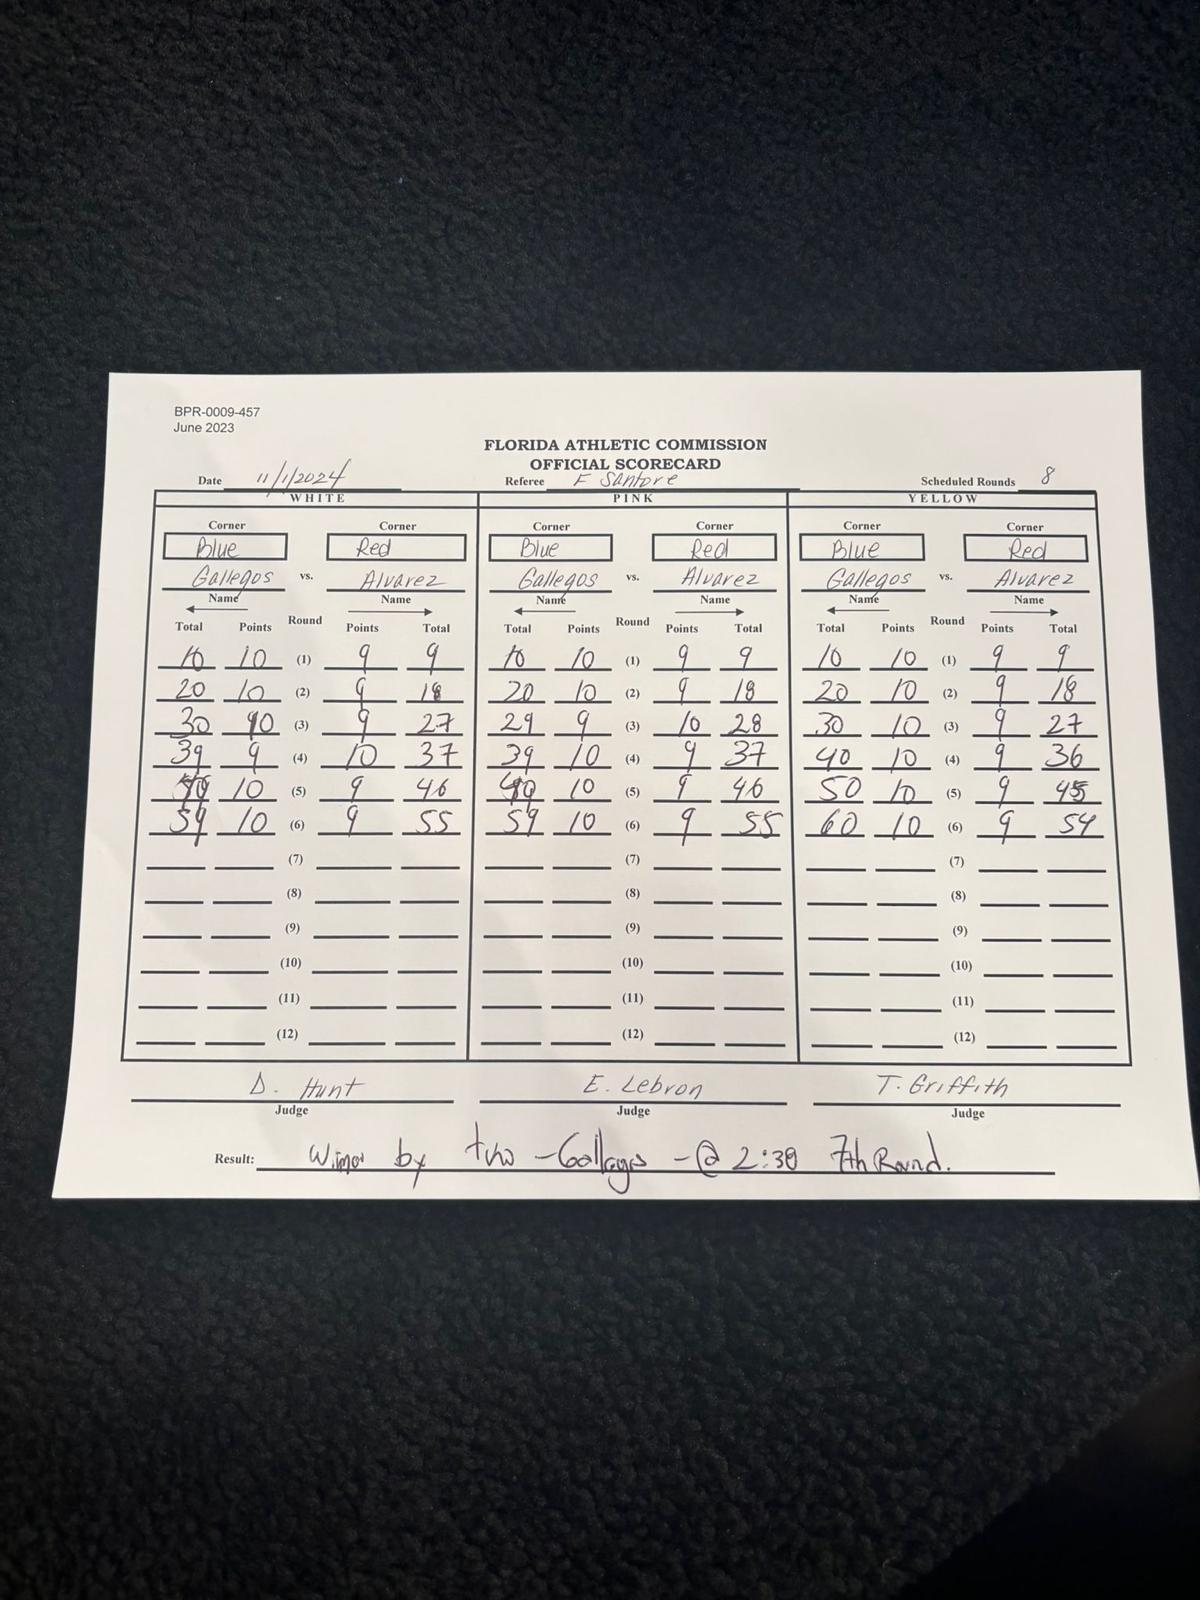 BPR-0009-457
June 2023
FLORIDA ATHLETIC COMMISSION
OFFICIAL SCORECARD
Date 11/1/2024 Referee F Santore Scheduled Rounds 8
WHITE PINK YELLOW
Corner Corner Corner Corner Corner Corner
Blue Red Blue Red Blue Red
Gallegos vs. Alvarez Gallegos vs. Alvarez Gallegos vs. Alvarez
Name Name Name Name Name Name
Total Points Round Points Total Total Points Round Points Total Total Points Round Points Total
10 10 (1) 9 9 10 10 (1) 9 9 10 10 (1) 9 9
20 10 (2) 9 18 20 10 (2) 9 18 20 10 (2) 9 18
30 10 (3) 9 27 29 9 (3) 10 28 30 10 (3) 9 27
39 9 (4) 10 37 39 10 (4) 9 37 40 10 (4) 9 36
49 10 (5) 9 46 49 10 (5) 9 46 50 10 (5) 9 45
59 10 (6) 9 55 59 10 (6) 9 55 60 10 (6) 9 54
(7) (7) (7)
(8) (8) (8)
(9) (9) (9)
(10) (10) (10)
(11) (11) (11)
(12) (12) (12)
D. Hunt E. Lebron T. Griffith
Judge Judge Judge
Result: by - Gallegos - @ 2:30 7th Round.